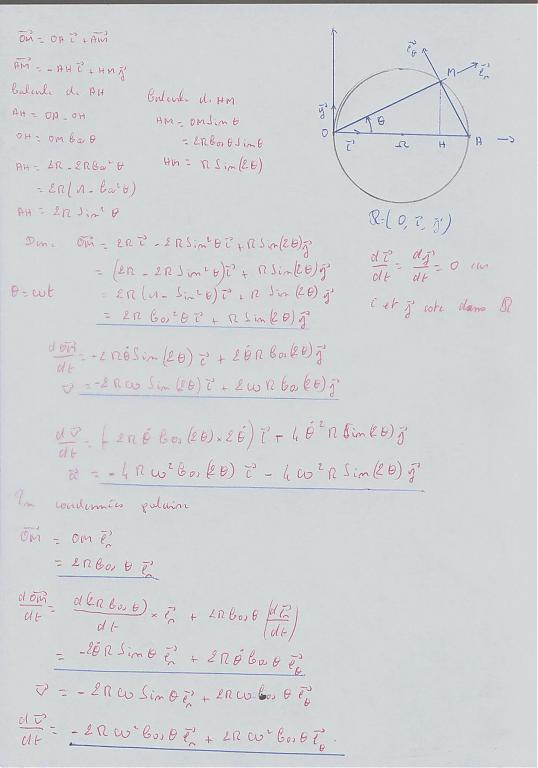 OM⃗ = OA i⃗ + AM⃗
AM⃗ = -AH i⃗ + HM j⃗
Calcule de AH
AH = OA - OH
OH = OM cos θ
AH = 2R - 2R cos² θ
= 2R (1 - cos² θ)
AH = 2R Sin² θ
Calcule de HM
HM = OM Sin θ
= 2R cos θ Sin θ
HM = R Sin(2θ)
e⃗θ
M
e⃗r
j⃗
O
θ
i⃗
Ω
H
A
R = (0, i⃗, j⃗)
di⃗/dt = dj⃗/dt = 0 car
i et j⃗ cste dans R
Donc OM⃗ = 2R i⃗ - 2R Sin² θ i⃗ + R Sin(2θ) j⃗
= (2R - 2R Sin² θ) i⃗ + R Sin(2θ) j⃗
θ = ωt = 2R (1 - Sin² θ) i⃗ + R Sin(2θ) j⃗
= 2R Cos² θ i⃗ + R Sin(2θ) j⃗
dOM⃗/dt = -2R θ̇ Sin(2θ) i⃗ + 2θ̇ R Cos(2θ) j⃗
v⃗ = -2Rω Sin(2θ) i⃗ + 2ωR Cos(2θ) j⃗
dv⃗/dt = (-2R θ̇ Cos(2θ) × 2θ̇) i⃗ - 4 θ̇² R Sin(2θ) j⃗
= -4Rω² Cos(2θ) i⃗ - 4ω² R Sin(2θ) j⃗
En coordonnées polaire
OM⃗ = OM e⃗r
= 2R Cos θ e⃗r
dOM⃗/dt = d(2R Cos θ)/dt × e⃗r + 2R Cos θ (de⃗r/dt)
= -2θ̇ R Sin θ e⃗r + 2R θ̇ Cos θ e⃗θ
v⃗ = -2Rω Sin θ e⃗r + 2Rω Cos θ e⃗θ
dv⃗/dt = -2Rω² Cos θ e⃗r + 2Rω² Cos θ e⃗θ